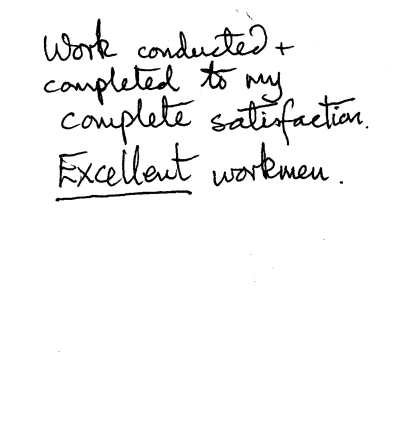 Work conducted +
completed to my
complete satisfaction.
Excellent workmen.